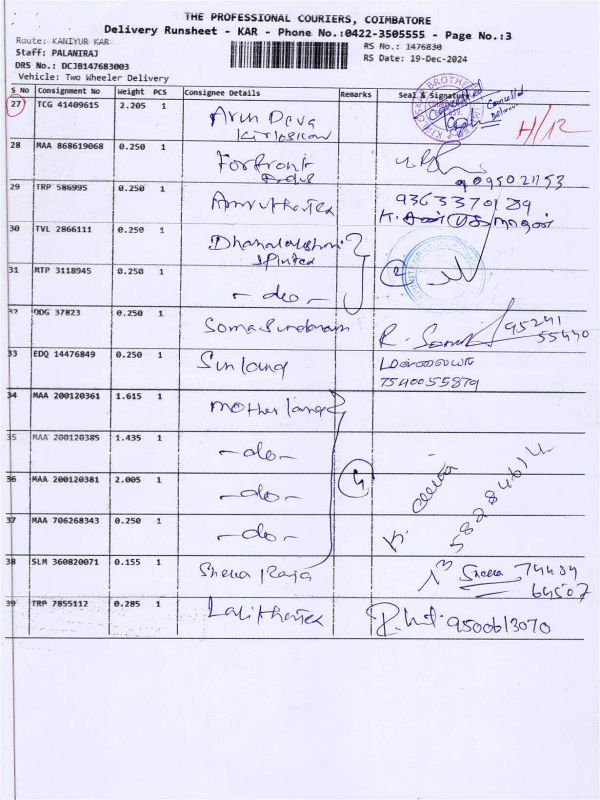 THE PROFESSIONAL COURIERS, COIMBATORE
Delivery Runsheet - KAR - Phone No.:0422-3505555 - Page No.:3
Route: KANIYUR KAR
RS No.: 1476830
Staff: PALANIRAJ
RS Date: 19-Dec-2024
DRS No.: DCJB147683003
Vehicle: Two Wheeler Delivery
S No Consignment No Weight PCS Consignee Details Remarks Seal & Signature
27 TCG 41409615 2.205 1 Arun Deva
Kirloskar
28 MAA 868619068 0.250 1 Forfront
29 TRP 586995 0.250 1 Amruthatex 9363370189
30 TVL 2866111 0.250 1 Dhanalakshmi
31 MTP 3118945 0.250 1 - do - 2
32 ODG 37823 0.250 1 Soma Sundaram R. 95241
55440
33 EDQ 14476849 0.250 1 Sunland
7540055879
34 MAA 200120361 1.615 1 Motherland
35 MAA 200120385 1.435 1 - do -
36 MAA 200120381 2.005 1 - do -
37 MAA 706268343 0.250 1 - do -
38 SLM 360820071 0.155 1 Sheea Raja Sheea 74484
64507
39 TRP 7855112 0.285 1 Lalithatex 9500613070